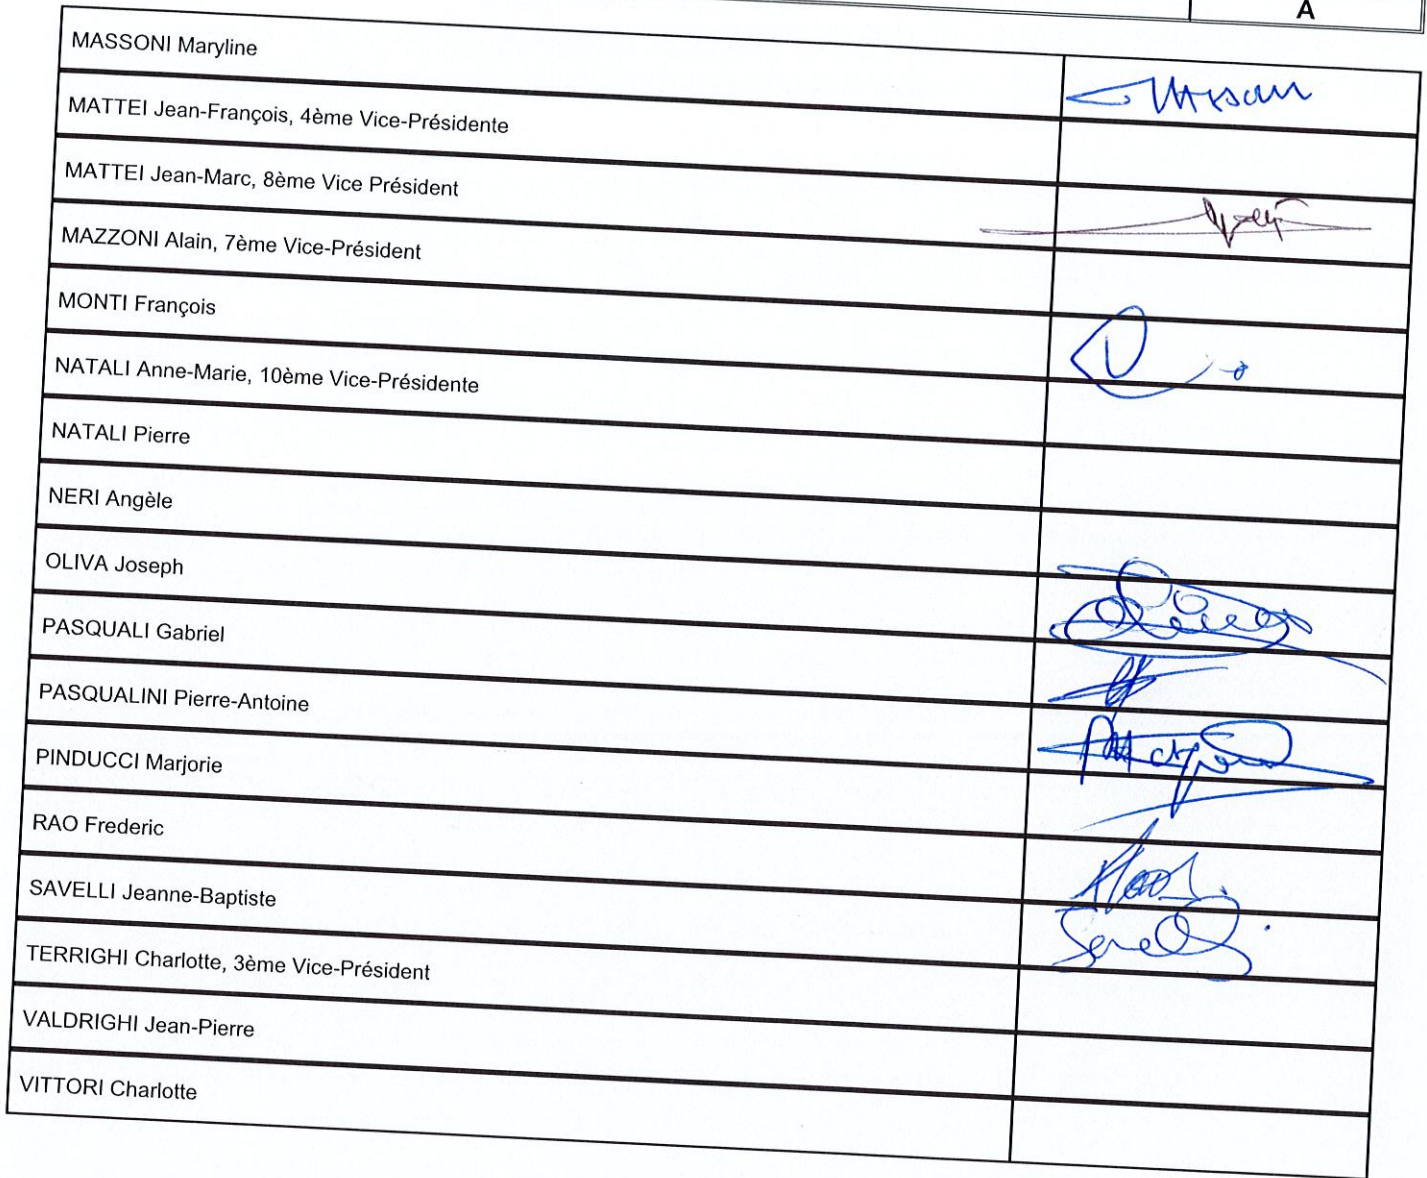 A
MASSONI Maryline
MATTEI Jean-François, 4ème Vice-Présidente
MATTEI Jean-Marc, 8ème Vice Président
MAZZONI Alain, 7ème Vice-Président
MONTI François
NATALI Anne-Marie, 10ème Vice-Présidente
NATALI Pierre
NERI Angèle
OLIVA Joseph
PASQUALI Gabriel
PASQUALINI Pierre-Antoine
PINDUCCI Marjorie
RAO Frederic
SAVELLI Jeanne-Baptiste
TERRIGHI Charlotte, 3ème Vice-Président
VALDRIGHI Jean-Pierre
VITTORI Charlotte